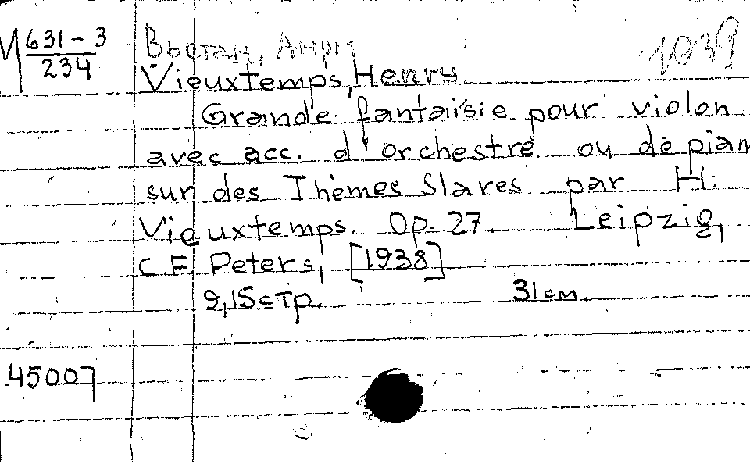 М 631-3
234
Вьетан, Анри
1039
Vieuxtemps, Henry
Grande fantaisie pour violon
avec acc. d'orchestre ou de pian
sur des Thèmes Slaves par H.
Vieuxtemps. Op. 27. Leipzig,
C F Peters, [1938]
9,15 стр. 31 см.
45007